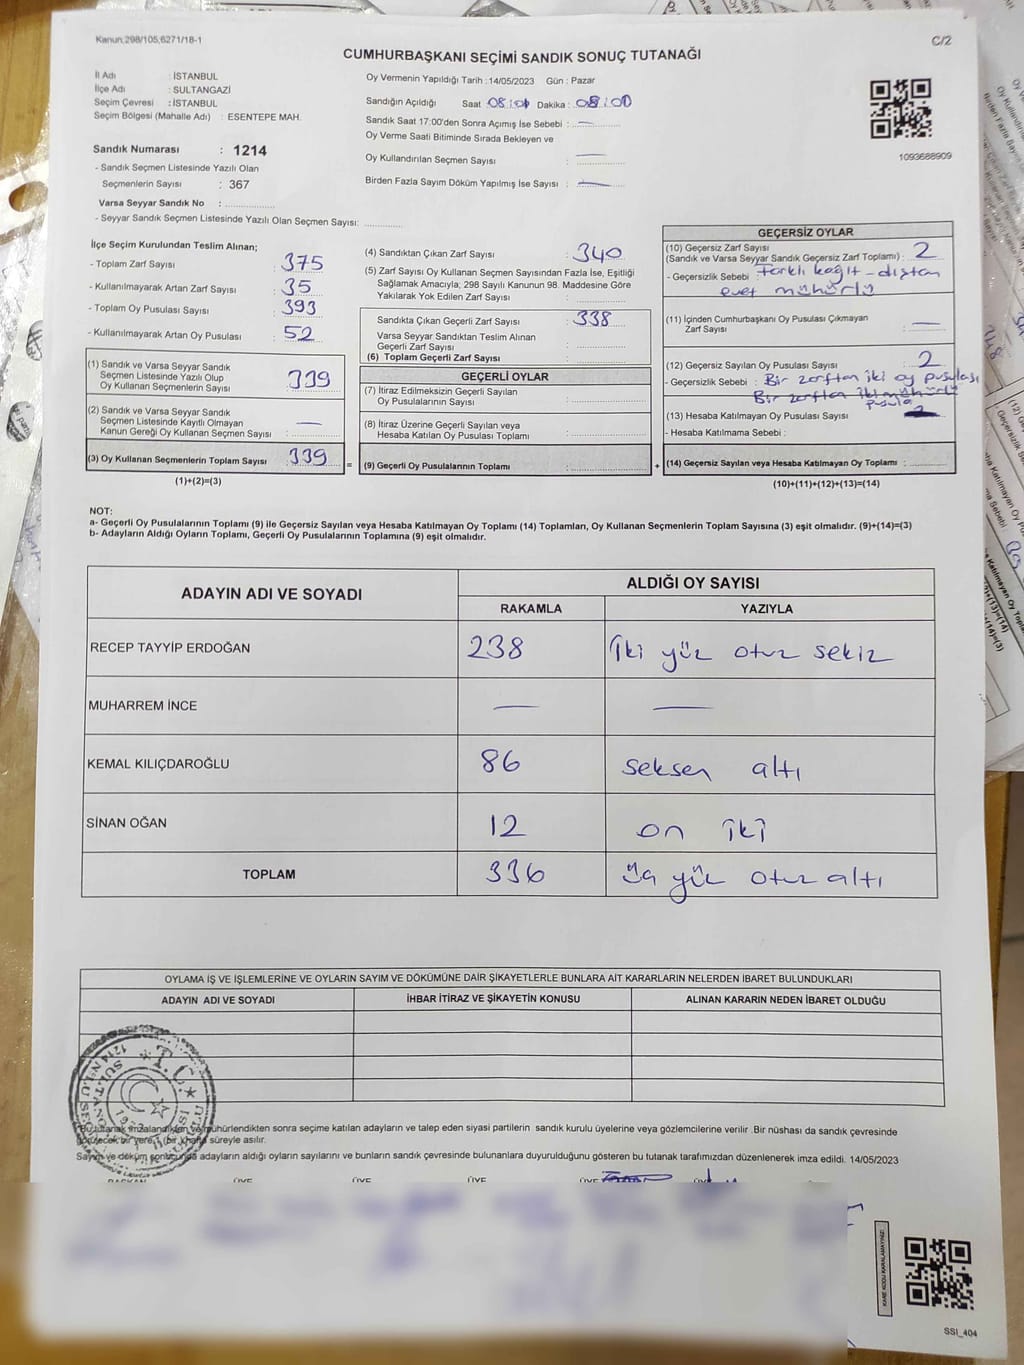 Kanun:298/105,6271/18-1
C/2
CUMHURBAŞKANI SEÇİMİ SANDIK SONUÇ TUTANAĞI
İl Adı : İSTANBUL
İlçe Adı : SULTANGAZİ
Seçim Çevresi : İSTANBUL
Seçim Bölgesi (Mahalle Adı) : ESENTEPE MAH.
Sandık Numarası : 1214
- Sandık Seçmen Listesinde Yazılı Olan
Seçmenlerin Sayısı : 367
Varsa Seyyar Sandık No :
- Seyyar Sandık Seçmen Listesinde Yazılı Olan Seçmen Sayısı:
Oy Vermenin Yapıldığı Tarih :14/05/2023 Gün : Pazar
Sandığın Açıldığı Saat : 08:00 Dakika : 08:00
Sandık Saat 17:00'den Sonra Açımış İse Sebebi : —
Oy Verme Saati Bitiminde Sırada Bekleyen ve
Oy Kullandırılan Seçmen Sayısı : —
Birden Fazla Sayım Döküm Yapılmış İse Sayısı : —
1093688909
İlçe Seçim Kurulundan Teslim Alınan;
- Toplam Zarf Sayısı : 375
- Kullanılmayarak Artan Zarf Sayısı : 35
- Toplam Oy Pusulası Sayısı : 393
- Kullanılmayarak Artan Oy Pusulası : 52
(1) Sandık ve Varsa Seyyar Sandık
Seçmen Listesinde Yazılı Olup
Oy Kullanan Seçmenlerin Sayısı : 339
(2) Sandık ve Varsa Seyyar Sandık
Seçmen Listesinde Kayıtlı Olmayan
Kanun Gereği Oy Kullanan Seçmen Sayısı : —
(3) Oy Kullanan Seçmenlerin Toplam Sayısı : 339 =
(1)+(2)=(3)
(4) Sandıktan Çıkan Zarf Sayısı : 340
(5) Zarf Sayısı Oy Kullanan Seçmen Sayısından Fazla İse, Eşitliği
Sağlamak Amacıyla; 298 Sayılı Kanunun 98. Maddesine Göre
Yakılarak Yok Edilen Zarf Sayısı :
Sandıkta Çıkan Geçerli Zarf Sayısı : 338
Varsa Seyyar Sandıktan Teslim Alınan
Geçerli Zarf Sayısı :
(6) Toplam Geçerli Zarf Sayısı :
GEÇERLİ OYLAR
(7) İtiraz Edilmeksizin Geçerli Sayılan
Oy Pusulalarının Sayısı :
(8) İtiraz Üzerine Geçerli Sayılan veya
Hesaba Katılan Oy Pusulası Toplamı :
(9) Geçerli Oy Pusulalarının Toplamı : +
GEÇERSİZ OYLAR
(10) Geçersiz Zarf Sayısı
(Sandık ve Varsa Seyyar Sandık Geçersiz Zarf Toplamı) : 2
- Geçersizlik Sebebi : farklı kağıt - dıştan
evet mühürlü
(11) İçinden Cumhurbaşkanı Oy Pusulası Çıkmayan
Zarf Sayısı : —
(12) Geçersiz Sayılan Oy Pusulası Sayısı : 2
- Geçersizlik Sebebi : Bir zarftan iki oy pusulası
Bir zarftan iki mühürlü
pusula
(13) Hesaba Katılmayan Oy Pusulası Sayısı :
- Hesaba Katılmama Sebebi :
(14) Geçersiz Sayılan veya Hesaba Katılmayan Oy Toplamı :
(10)+(11)+(12)+(13)=(14)
NOT:
a- Geçerli Oy Pusulalarının Toplamı (9) ile Geçersiz Sayılan veya Hesaba Katılmayan Oy Toplamı (14) Toplamları, Oy Kullanan Seçmenlerin Toplam Sayısına (3) eşit olmalıdır. (9)+(14)=(3)
b- Adayların Aldığı Oyların Toplamı, Geçerli Oy Pusulalarının Toplamına (9) eşit olmalıdır.
ADAYIN ADI VE SOYADI
ALDIĞI OY SAYISI
RAKAMLA YAZIYLA
RECEP TAYYİP ERDOĞAN 238 İki yüz otuz sekiz
MUHARREM İNCE — —
KEMAL KILIÇDAROĞLU 86 seksen altı
SİNAN OĞAN 12 on iki
TOPLAM 336 üç yüz otuz altı
OYLAMA İŞ VE İŞLEMLERİNE VE OYLARIN SAYIM VE DÖKÜMÜNE DAİR ŞİKAYETLERLE BUNLARA AİT KARARLARIN NELERDEN İBARET BULUNDUKLARI
ADAYIN ADI VE SOYADI İHBAR İTİRAZ VE ŞİKAYETİN KONUSU ALINAN KARARIN NEDEN İBARET OLDUĞU
T.C.
Bu tutanak imzalandıktan ve mühürlendikten sonra seçime katılan adayların ve talep eden siyasi partilerin sandık kurulu üyelerine veya gözlemcilerine verilir .Bir nüshası da sandık çevresinde
görülecek bir yere 1 (bir) hafta süreyle asılır.
Sayım ve döküm sonucunda adayların aldığı oyların sayılarını ve bunların sandık çevresinde bulunanlara duyurulduğunu gösteren bu tutanak tarafımızdan düzenlenerek imza edildi. 14/05/2023
BAŞKAN ÜYE ÜYE ÜYE ÜYE
KARE KODU KARALAMAYINIZ!
SSI_404